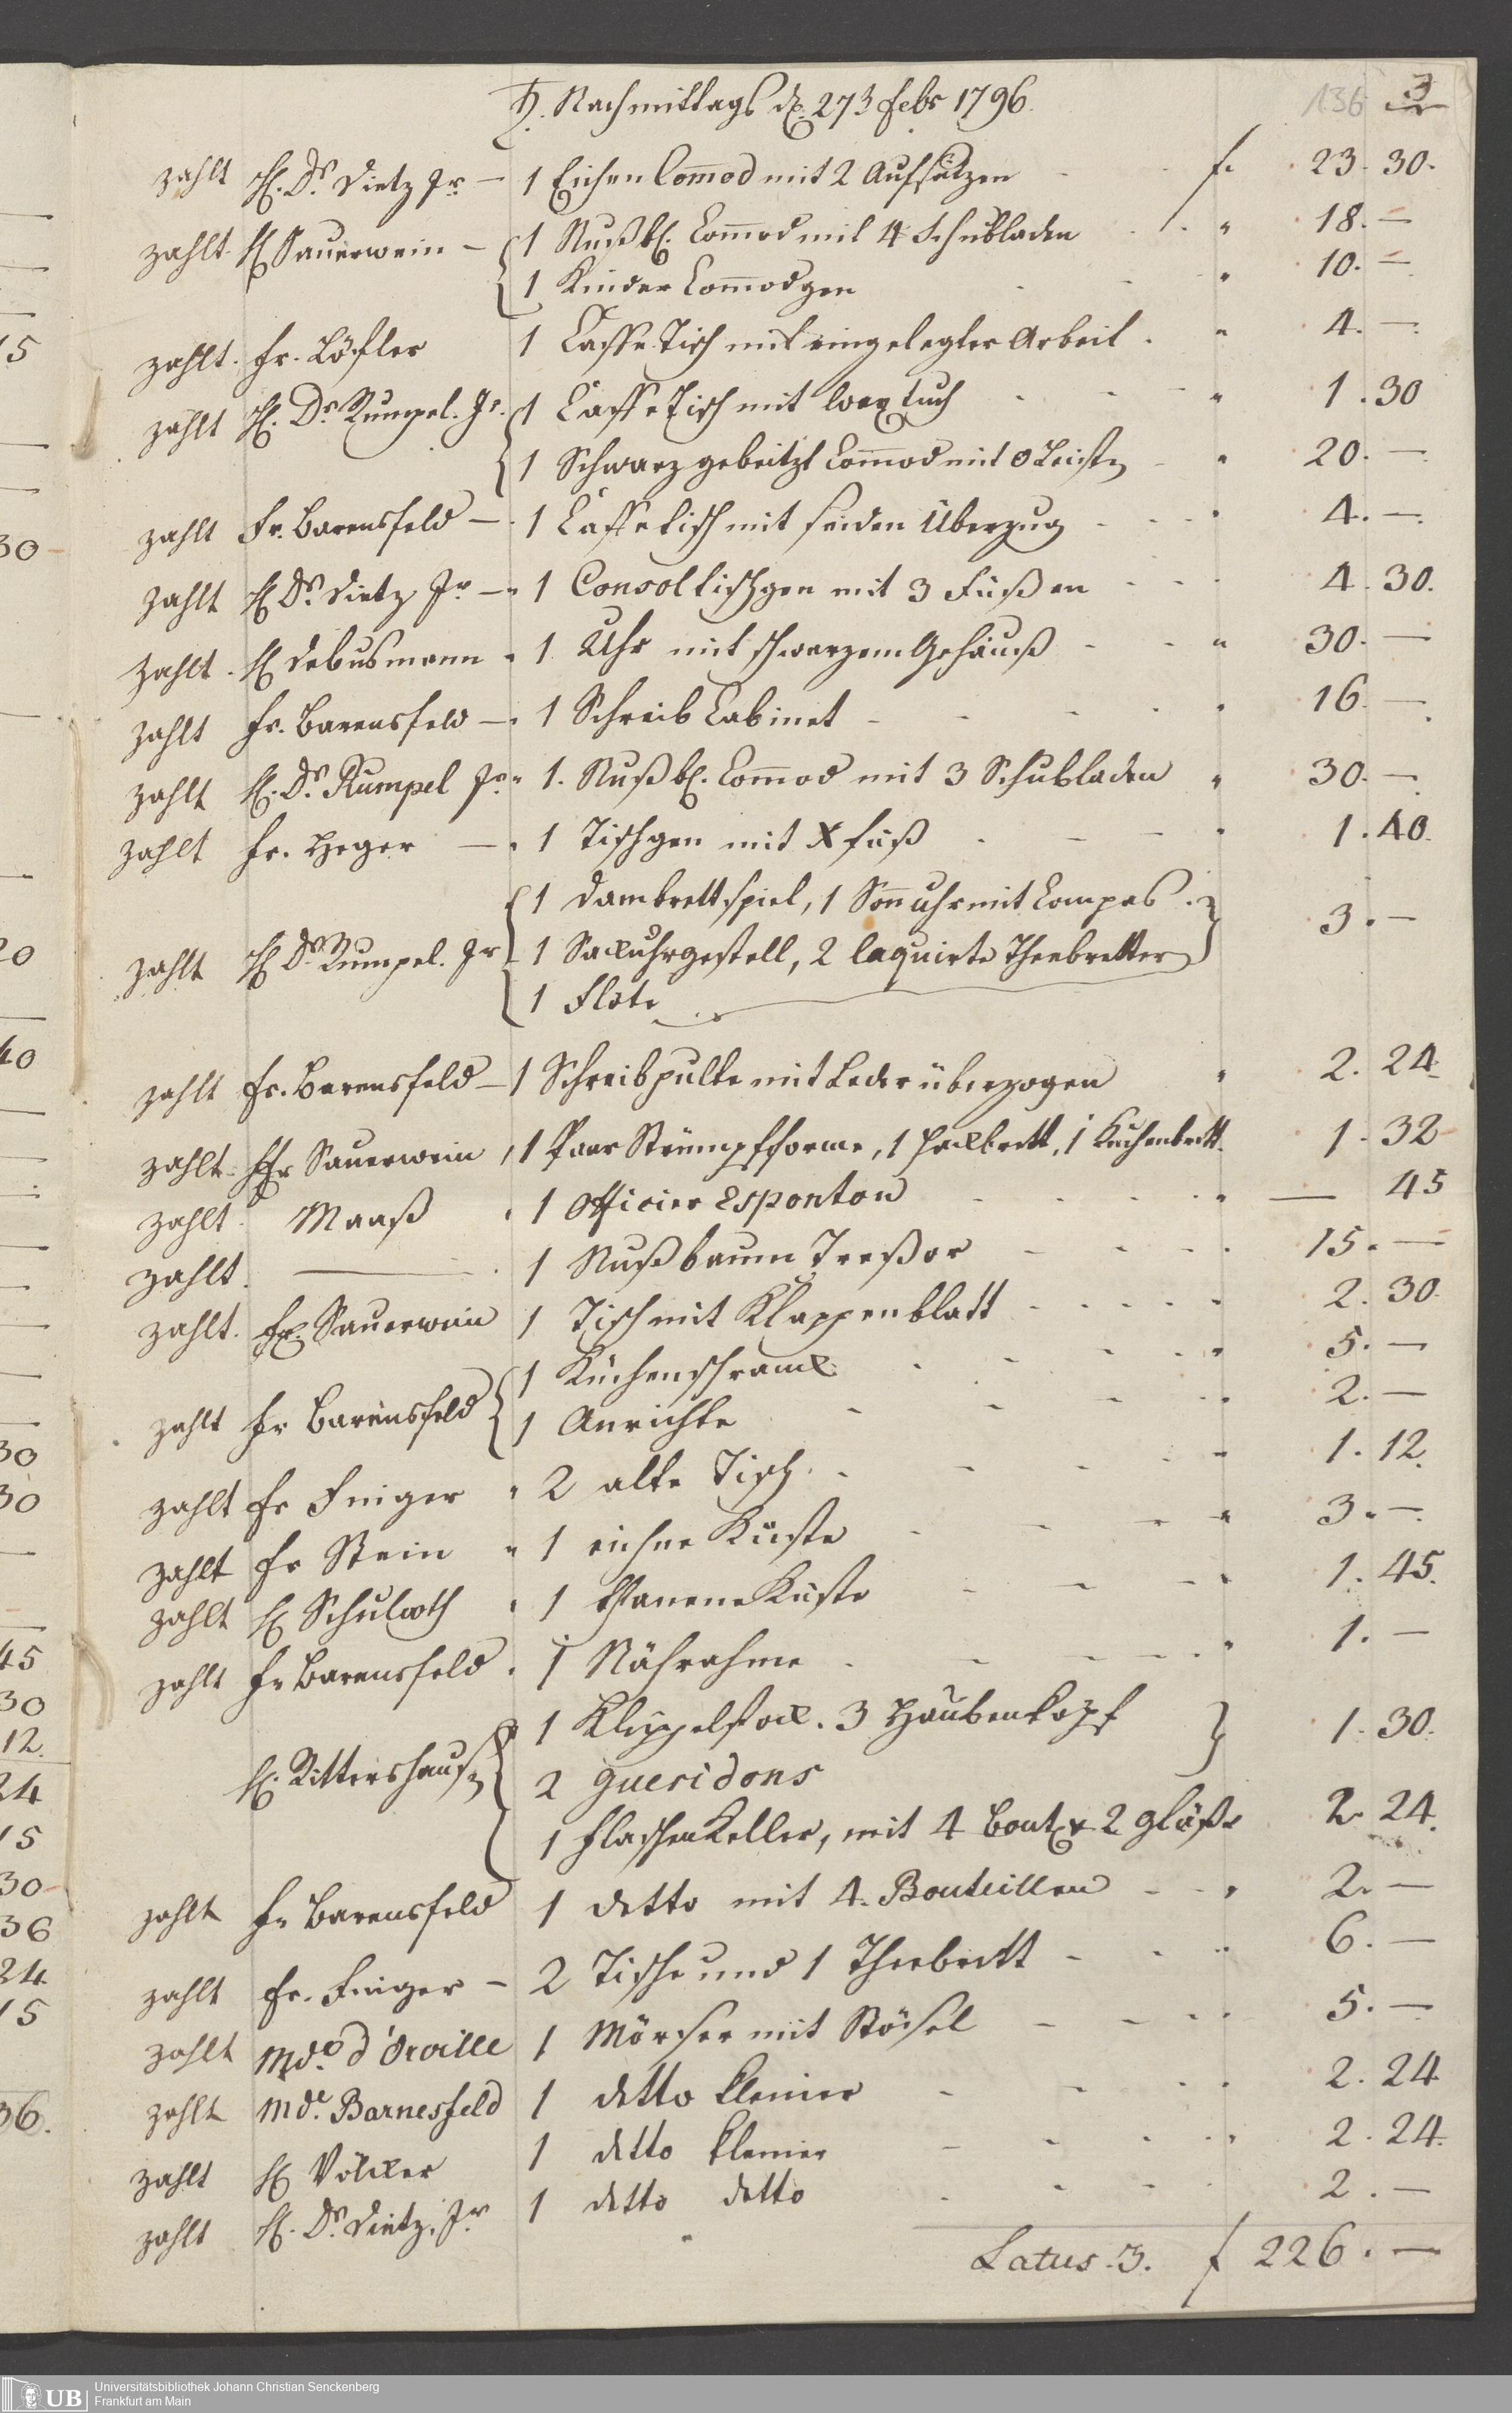 ħ. Nachmittags d. 27 3 Febr 1796. 136 3
zahlt H. Dr. Dietz Jr. — 1 Eichen Com̄od mit 2 Aufsätzen f. 23. 30.
zahlt H Sauerwein — 1 Nußb. Com̄od mit 4 Schubladen " 18. —
1 Kinder Com̄odgen " 10. —
zahlt. Fr. Löfler 1 Caffe Tisch mit eingelegter Arbeit " 4. —
zahlt H. Dr Rumpel. Jr. 1 Caffe Tisch mit Waxtuch " 1. 30
1 Schwarz gebeitzt Com̄od mit 0 Leisten " 20. —
zahlt Fr. Barensfeld — 1 Caffe tisch mit seiden Überzug " 4. —
zahlt H Dr. Dietz Jr — 1 Consoltischgen mit 3 Füßen 4. 30.
zahlt. H Debusmann " 1 Uhr mit schwarzem Gehäuß " 30. —
zahlt Fr. Barensfeld — 1 Schreib Cabinet " 16. —
zahlt H. Dr. Rumpel Jr " 1. Nußb. Com̄od mit 3 Schubladen " 30. —
zahlt Fr. Heger — 1 Tischgen mit X fuß " 1. 40.
1 Dambrettspiel, 1 Son̄uhr mit Compas.
zahlt H Dr Rumpel. Jr 1 Sackuhrgestell, 2 laquirte Theebretter 3. —
1 Flöte
zahlt Fr. Barensfeld — 1 Schreibpulte mit Leder überzogen " 2. 24
zahlt Fr Sauerwein, 1 Paar Strümpfforme, 1 Hackbrett, 1 Kuchenbrett. 1. 32
zahlt. Maaß " 1 Officier Esponton " — 45
zahlt. — 1 Nußbaum Treßor 15. —
zahlt. Fr. Sauerwein 1 Tisch mit Klappenblatt " 2. 30
1 Küchenschranck " 5. —
zahlt Fr Barensfeld 1 Anrichte " 2. —
zahlt Fr Finiger " 2 alte Tisch " 1. 12.
zahlt Fr Stein " 1 eichne Küste " 3. —
zahlt H Schulwth " 1 thanene Küste " 1. 45.
zahlt Fr Barensfeld. " 1 Nährahme " 1. —
1 Klöppelstock. 3 Haubenkopf
H. Rittershausen 2 Gueridons 1. 30.
1 Flaschen Keller, mit 4 Bout & 2 Gläßer 2. 24.
zahlt Fr Barensfeld 1 detto mit 4. Bouteillen " 2. —
zahlt Fr. Finiger — 2 Tische und 1 Theebrett 6. —
zahlt Mde. d'Orville 1 Mörser mit Stösel 5. —
zahlt Mde. Barnesfeld 1 detto kleiner 2. 24
zahlt H Völcker 1 detto kleiner 2. 24.
zahlt H. Dr. Dietz. Jr 1 detto detto 2. —
Latus. 3. f 226. —
15
30
20
40
30
30
45
30
12.
24
15
30
36
24
15
36.
UB
Universitätsbibliothek Johann Christian Senckenberg
Frankfurt am Main